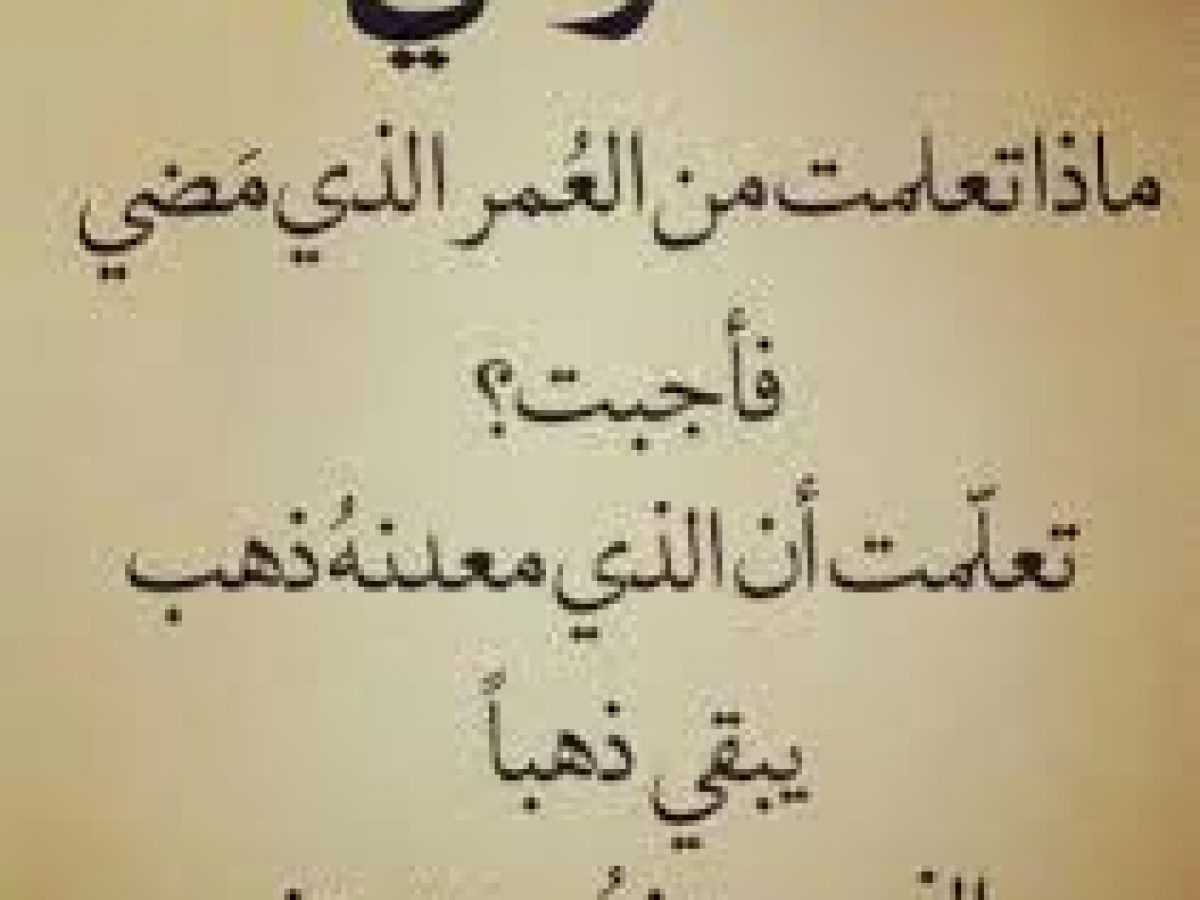 ماذا تعلمت من العُمر الذي مَضي
فأجبت؟
تعلّمت أن الذي معدنهُ ذهب
يبقي ذهباً